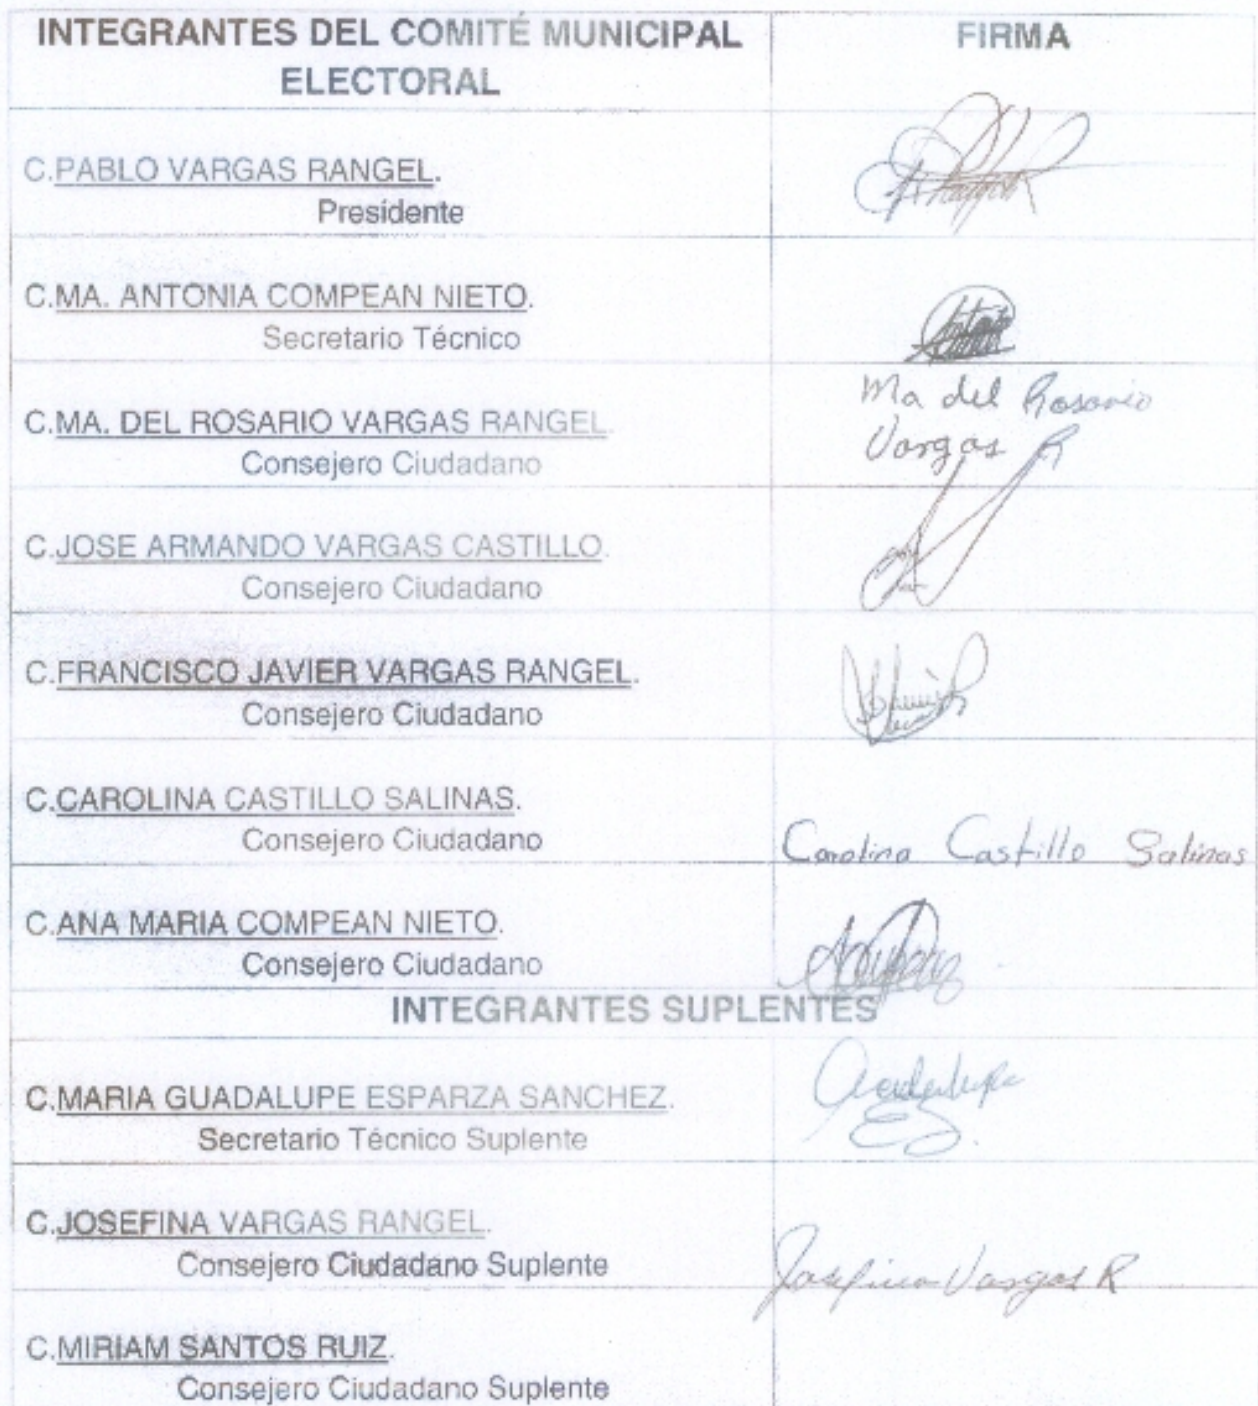 INTEGRANTES DEL COMITÉ MUNICIPAL
ELECTORAL
FIRMA
C.PABLO VARGAS RANGEL.
Presidente
C.MA. ANTONIA COMPEAN NIETO.
Secretario Técnico
C.MA. DEL ROSARIO VARGAS RANGEL.
Consejero Ciudadano
Ma del Rosario
Vargas R
C.JOSE ARMANDO VARGAS CASTILLO.
Consejero Ciudadano
C.FRANCISCO JAVIER VARGAS RANGEL.
Consejero Ciudadano
C.CAROLINA CASTILLO SALINAS.
Consejero Ciudadano
Carolina Castillo Salinas
C.ANA MARIA COMPEAN NIETO.
Consejero Ciudadano
INTEGRANTES SUPLENTES
C.MARIA GUADALUPE ESPARZA SANCHEZ.
Secretario Técnico Suplente
C.JOSEFINA VARGAS RANGEL.
Consejero Ciudadano Suplente
Josefina Vargas R
C.MIRIAM SANTOS RUIZ.
Consejero Ciudadano Suplente